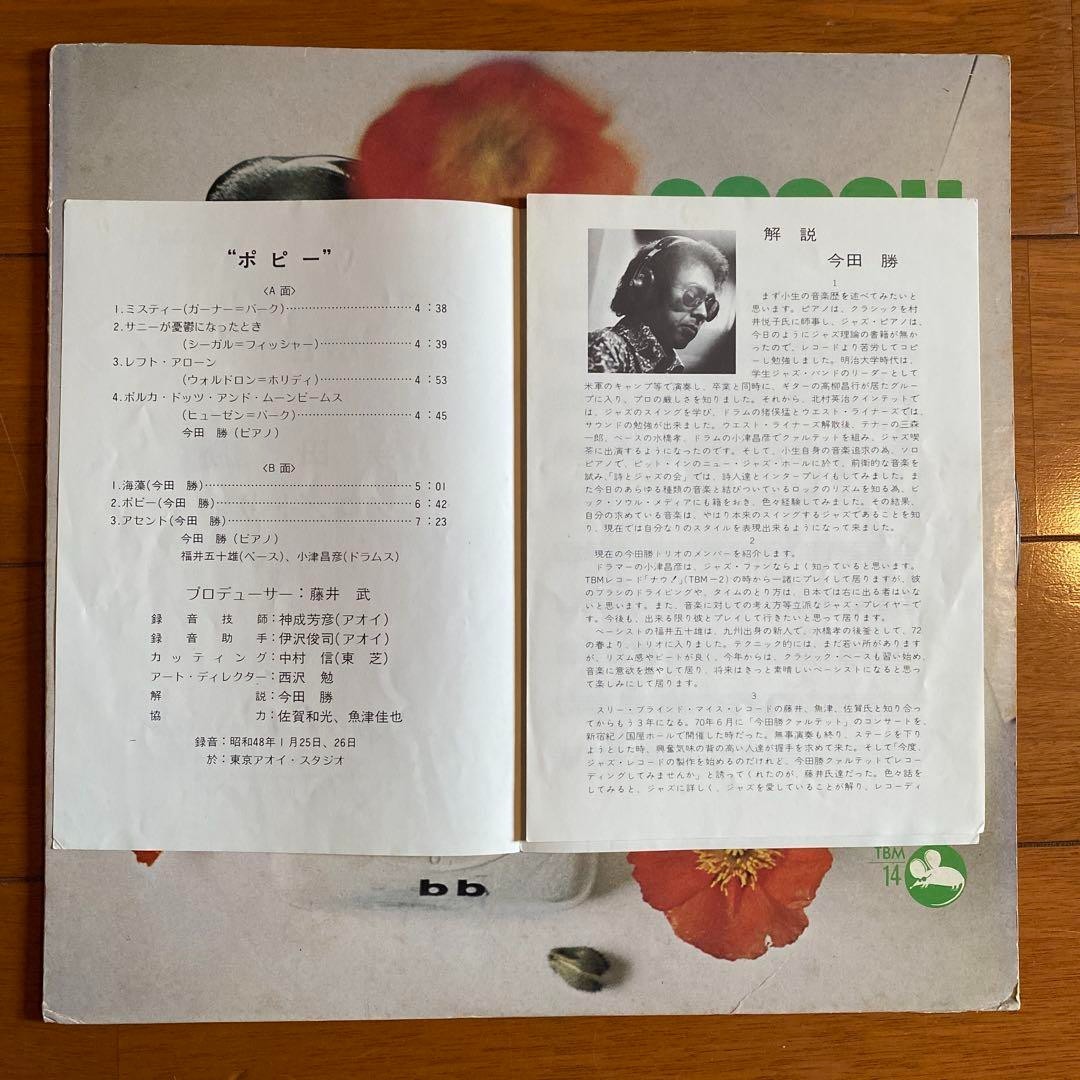 “ポピー”
〈A面〉
1.ミスティー(ガーナー=バーク)……………………4：38
2.サニーが憂鬱になったとき
(シーガル=フィッシャー)………………4：39
3.レフト・アローン
(ウォルドロン=ホリディ)………………4：53
4.ポルカ・ドッツ・アンド・ムーンビームス
(ヒューゼン=バーク)……………………4：45
今田　勝(ピアノ)
〈B面〉
1.海藻(今田　勝)……………………………………5：01
2.ポピー(今田　勝)…………………………………6：42
3.アセント(今田　勝)………………………………7：23
今田　勝(ピアノ)
福井五十雄(ベース)、小津昌彦(ドラムス)
プロデューサー：藤井　武
録音技師：神成芳彦(アオイ)
録音助手：伊沢俊司(アオイ)
カッティング：中村　信(東　芝)
アート・ディレクター：西沢　勉
解説：今田　勝
協力：佐賀和光、魚津佳也
録音：昭和48年1月25日、26日
於：東京アオイ・スタジオ
解　説
今田　勝
1
まず小生の音楽歴を述べてみたいと
思います。ピアノは、クラシックを村
井悦子氏に師事し、ジャズ・ピアノは、
今日のようにジャズ理論の書籍が無か
ったので、レコードより苦労してコピ
ーし勉強しました。明治大学時代は、
学生ジャズ・バンドのリーダーとして
米軍のキャンプ等で演奏し、卒業と同時に、ギターの高柳昌行が居たグルー
プに入り、プロの厳しさを知りました。それから、北村英治クインテットで
は、ジャズのスイングを学び、ドラムの猪俣猛とウエスト・ライナーズでは、
サウンドの勉強が出来ました。ウエスト・ライナーズ解散後、テナーの三森
一郎、ベースの水橋孝、ドラムの小津昌彦でクァルテットを組み、ジャズ喫
茶に出演するようになったのです。そして、小生自身の音楽追求の為、ソロ
ピアノで、ピット・インのニュー・ジャズ・ホールに於て、前衛的な音楽を
試み、「詩とジャズの会」では、詩人達とインタープレイもしてみました。ま
た今日のあらゆる種類の音楽と結びついているロックのリズムを知る為、ビ
ック・ソウル・メディアにも籍をおき、色々経験してみました。その結果、
自分の求めている音楽は、やはり本来のスイングするジャズであることを知
り、現在では自分なりのスタイルを表現出来るようになって来ました。
2
現在の今田勝トリオのメンバーを紹介します。
ドラマーの小津昌彦は、ジャズ・ファンならよく知っていると思います。
TBMレコード「ナウ！」(TBM－2)の時から一緒にプレイして居りますが、彼
のブラシのドライビングや、タイムのとり方は、日本では右に出る者はいな
いと思います。また、音楽に対しての考え方等立派なジャズ・プレイヤーで
す。今後も、出来る限り彼とプレイして行きたいと思って居ります。
ベーシストの福井五十雄は、九州出身の新人で、水橋孝の後釜として、72
の春より、トリオに入りました。テクニック的には、まだ若い所があります
が、リズム感やビートが良く、今年からは、クラシック・ベースも習い始め、
音楽に意欲を燃やして居り、将来はきっと素晴しいベーシストになると思っ
て楽しみにして居ります。
3
スリー・ブラインド・マイス・レコードの藤井、魚津、佐賀氏と知り合っ
てからもう3年になる。70年6月に「今田勝クァルテット」のコンサートを、
新宿紀ノ国屋ホールで開催した時だった。無事演奏も終り、ステージを下り
ようとした時、興奮気味の背の高い人達が握手を求めて来た。そして「今度、
ジャズ・レコードの製作を始めるのだけれど、今田勝クァルテットでレコー
ディングしてみませんか」と誘ってくれたのが、藤井氏達だった。色々話を
してみると、ジャズに詳しく、ジャズを愛していることが解り、レコーディ
TBM
14
bb